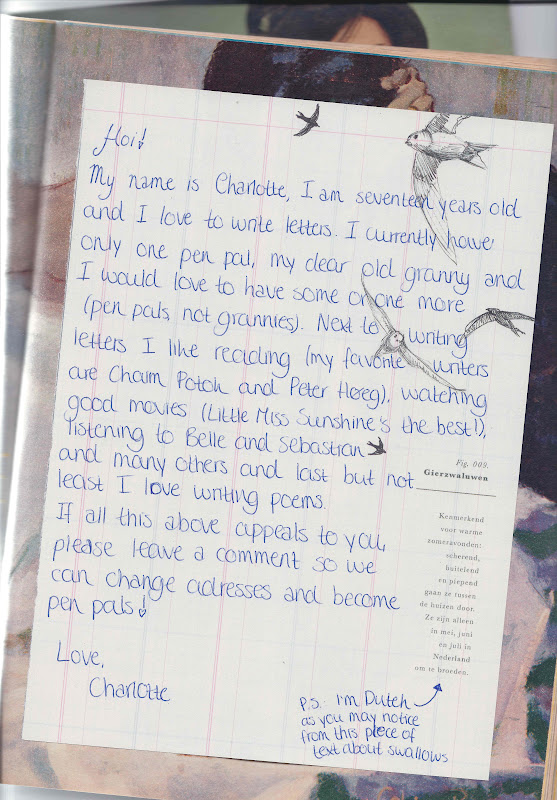 Hoi!
My name is Charlotte, I am seventeen years old
and I love to write letters. I currently have
only one pen pal, my dear old granny and
I would love to have some or one more
(pen pals, not grannies). Next to writing
letters I like reading (my favorite writers
are Chaim Potok and Peter Høeg), watching
good movies (Little Miss Sunshine's the best!),
listening to Belle and Sebastian
and many others and last but not
least I love writing poems.
If all this above appeals to you,
please leave a comment so we
can change adresses and become
pen pals!
Love,
Charlotte
Fig. 009.
Gierzwaluwen
Kenmerkend
voor warme
zomeravonden:
scherend,
buitelend
en piepend
gaan ze tussen
de huizen door.
Ze zijn alleen
in mei, juni
en juli in
Nederland
om te broeden.
P.S. I'm Dutch
as you may notice
from this piece of
text about swallows